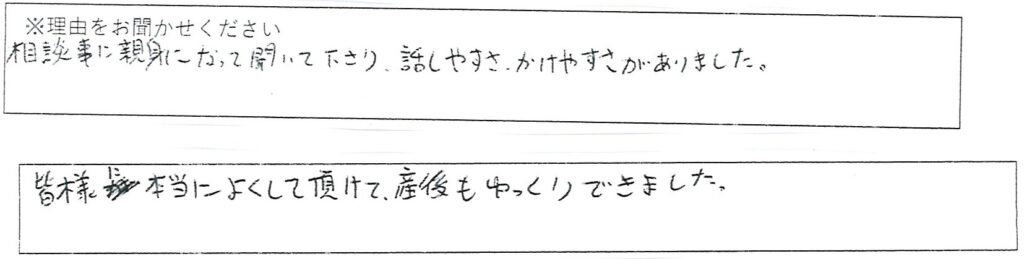 ※理由をお聞かせください
相談事に親身になって聞いて下さり、話しやすさ、かけやすさがありました。
皆様 本当によくして頂けて、産後もゆっくりできました。